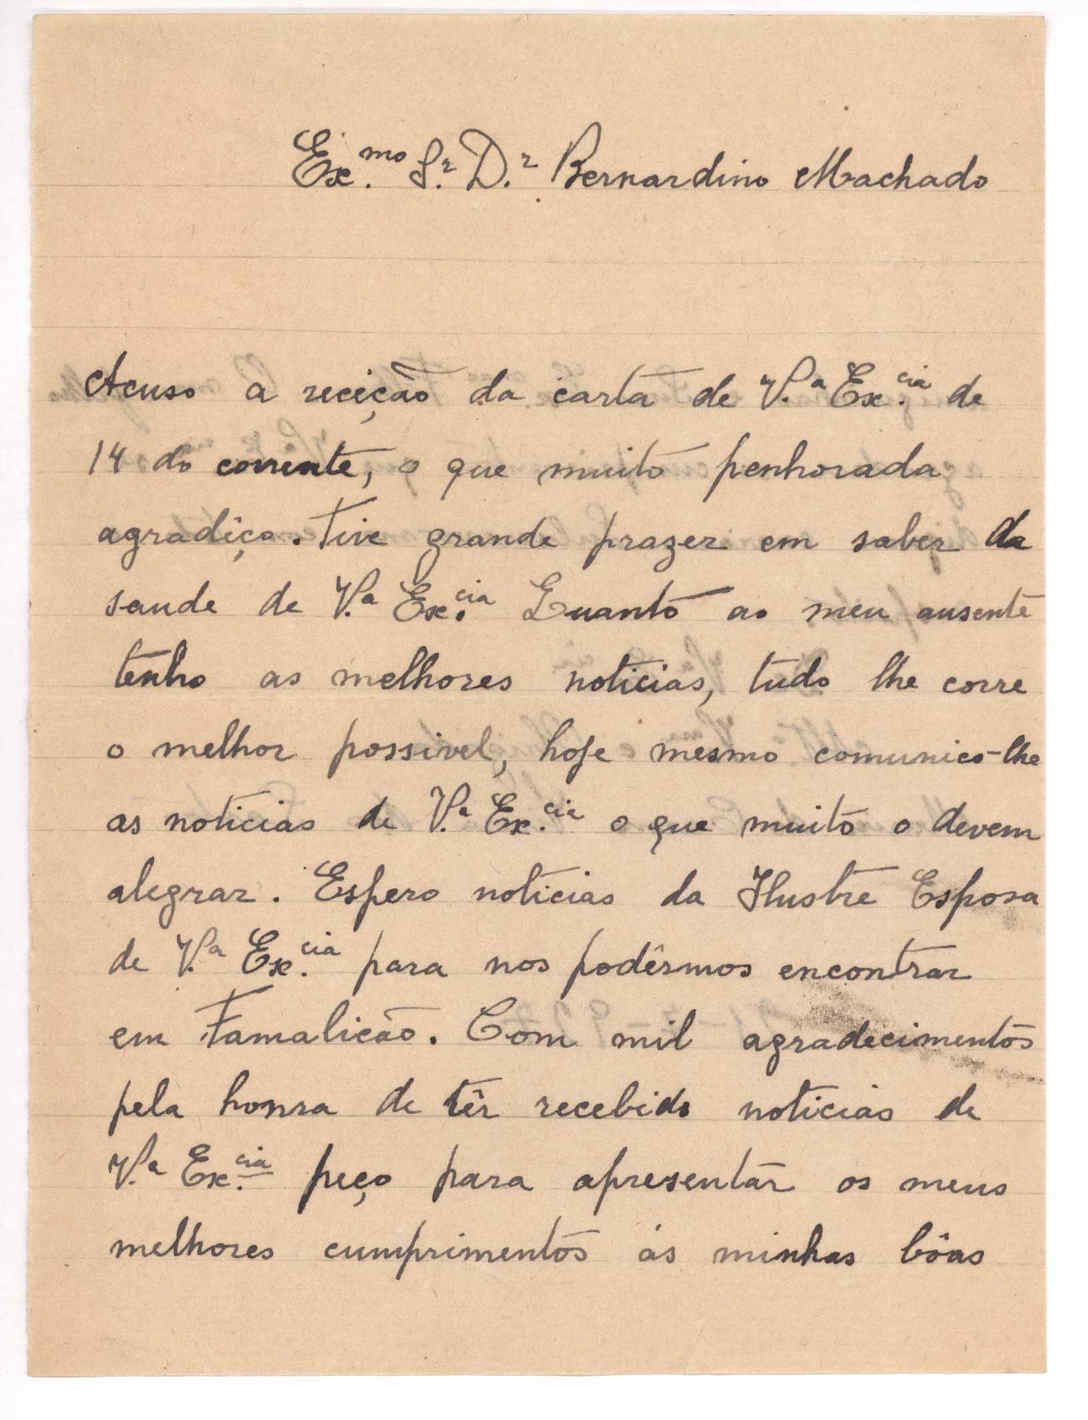 Ex.mo S.r D.r Bernardino Machado
Acuso a recição da carta de V.a Ex.cia de
14 do corrente, o que muito penhorada
agradiço. Tive grande prazer em saber da
saude de V.a Ex.cia Quanto ao meu ausente
tenho as melhores noticias, tudo lhe corre
o melhor possivel, hoje mesmo comunico-lhe
as noticias de V.a Ex.cia o que muito o devem
alegrar. Espero noticias da Ilustre Esposa
de V.a Ex.cia para nos podêrmos encontrar
em Famalicão. Com mil agradecimentos
pela honra de têr recebido noticias de
V.a Ex.cia peço para apresentar os meus
melhores cumprimentos ás minhas bôas